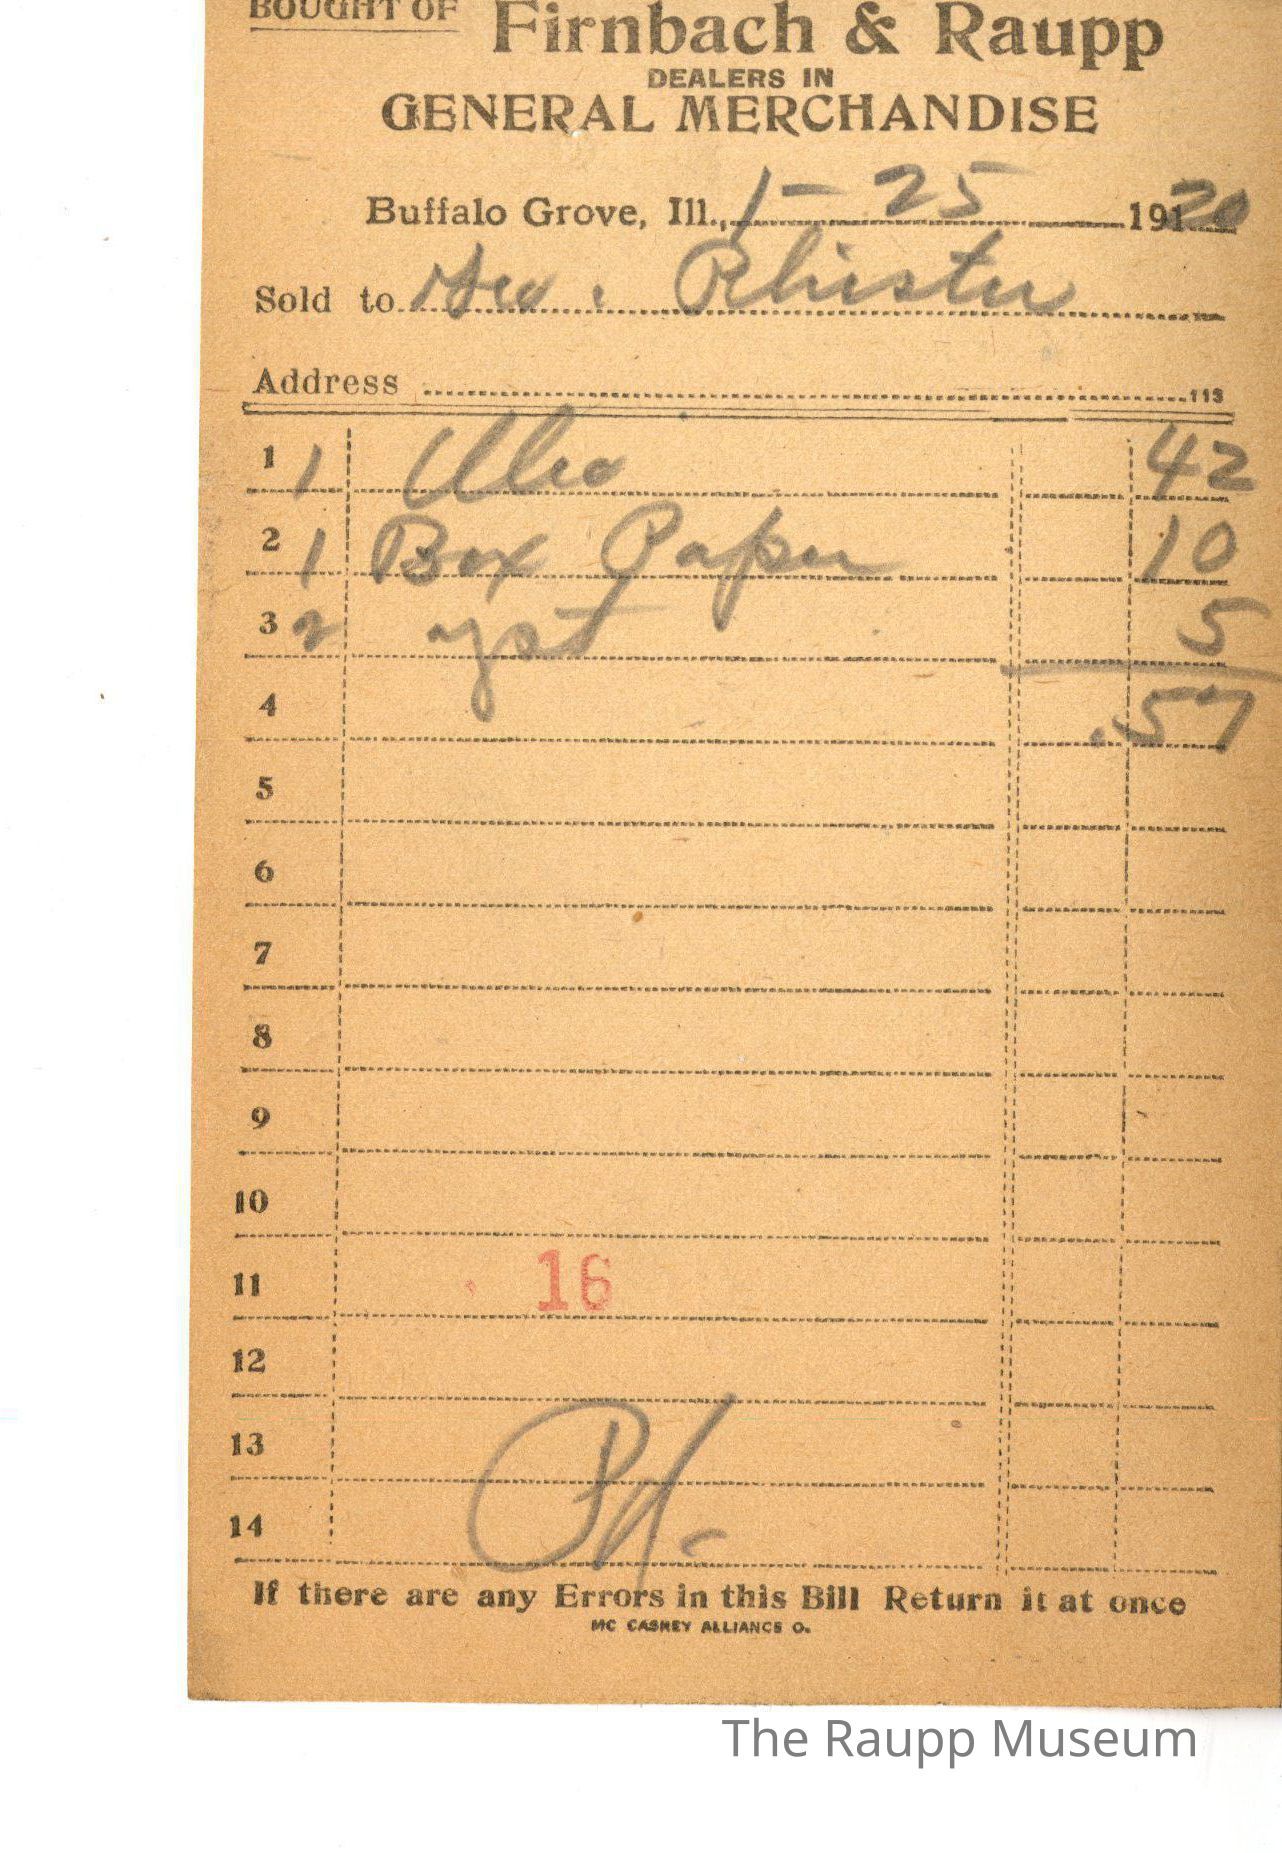 BOUGHT OF
Firnbach & Raupp
DEALERS IN
GENERAL MERCHANDISE
Buffalo Grove, Ill., 1-25 191 20
Sold to Geo. Rhister
Address 113
1 1 Oleo 42
2 1 Box Paper 10
3 2 yst 5
4 .57
5
6
7
8
9
10
11 16
12
13
14
If there are any Errors in this Bill Return it at once
MC CASKEY ALLIANCE O.
The Raupp Museum